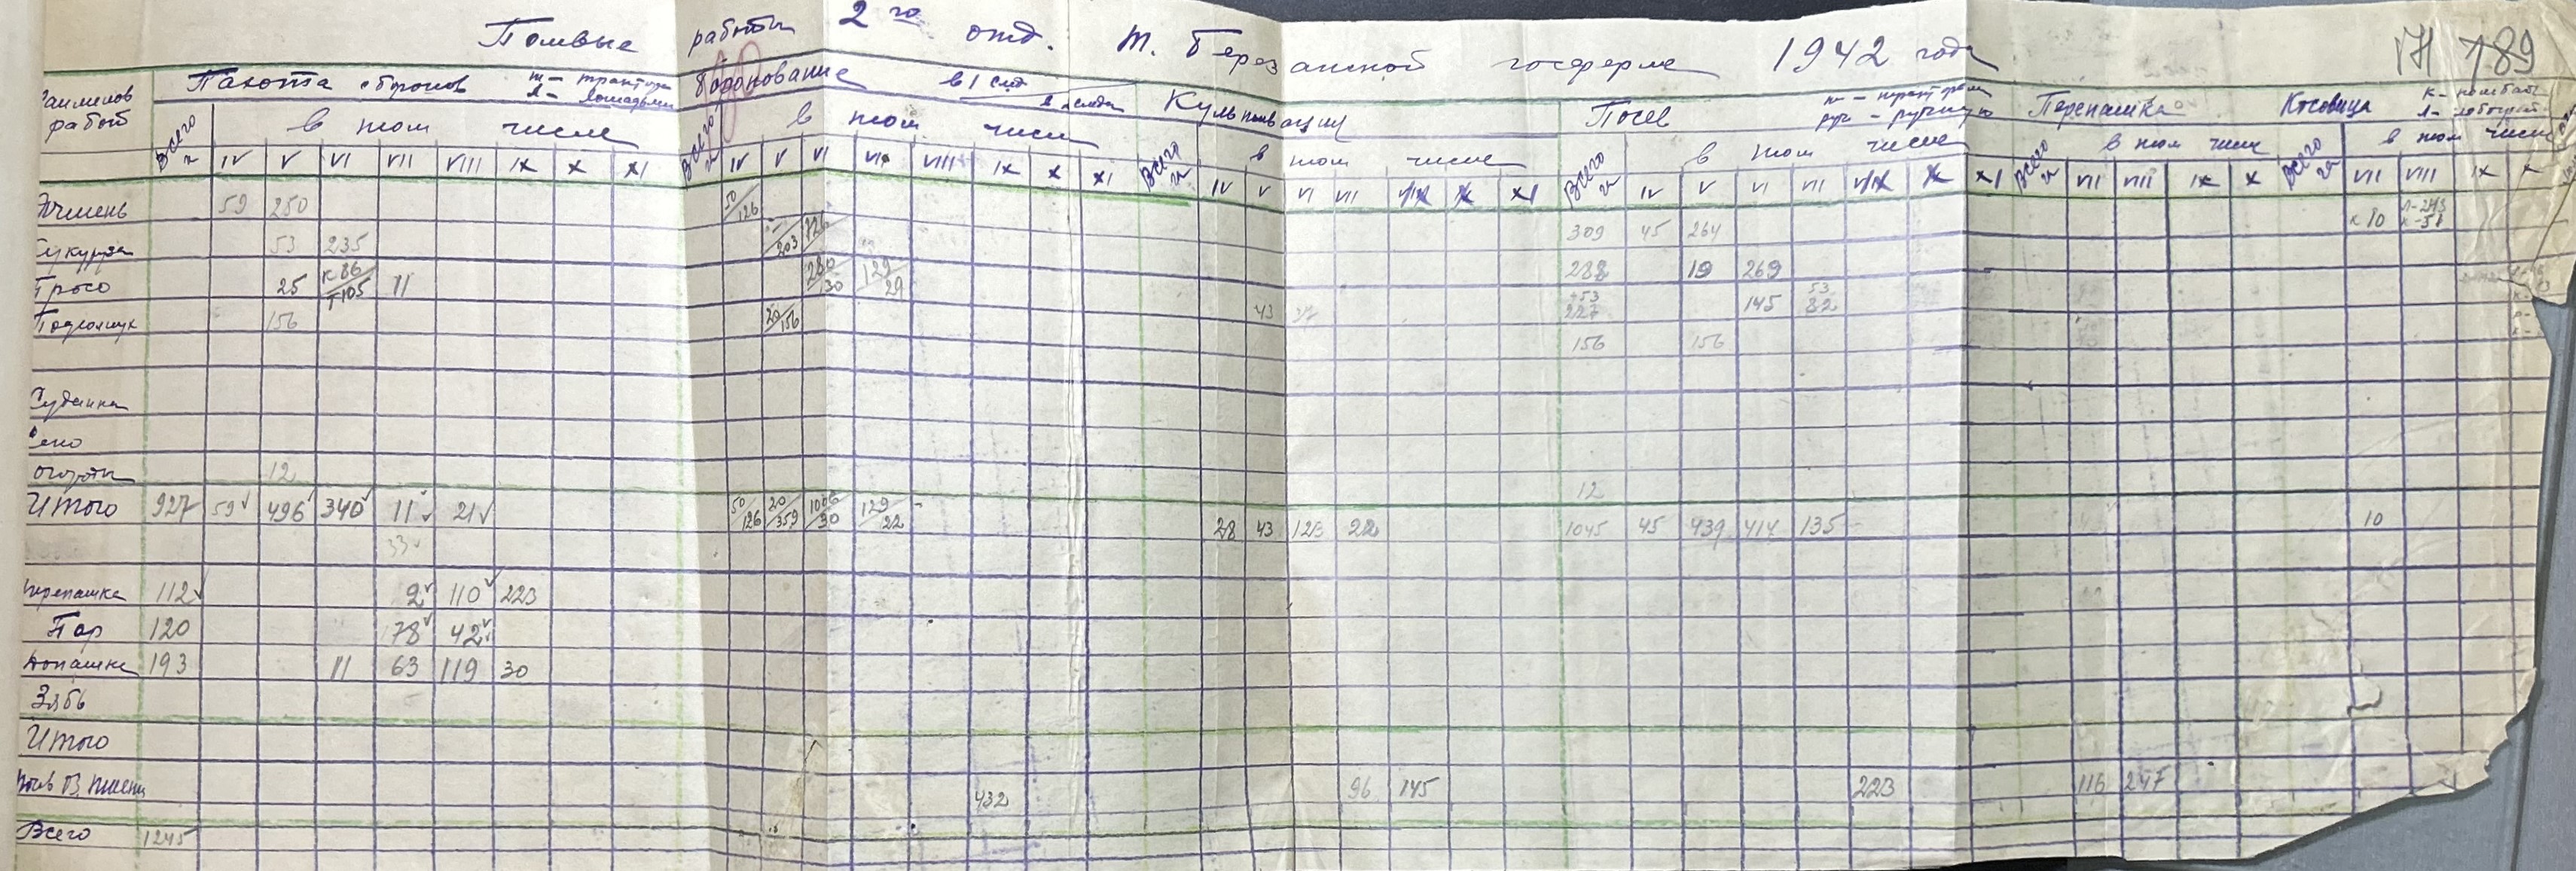 Полевые работы 2го отд. т. Березанской госферме 1942 года
189
Наименов работ Пахота с бронов т - трактора л - лошадьми Боронование в 1 след в 2 следа Культивация Посев Перепашка Косовица
Всего га в том числе Всего га в том числе Всего га в том числе Всего га в том числе Всего га в том числе Всего га в том числе
IV V VI VII VIII IX X XI IV V VI VII VIII IX X XI IV V VI VII VIII X XI IV V VI VII VIII X XI VII VIII IX X VII VIII IX X
Ячмень 59 250 50/126 309 45 264 к 10 л-243 к-51
Кукуруза 53 235 203 726 288 19 269
Просо 25 к 86/т 105 11 280/30 129/29 43 +53 227 145 53 82
Подсолнух 156 20/156 156 156
Суданка
Сено
Огороды 12 12
Итого 927 59 496 340 11 21 50/126 20/359 1006/30 129/22 28 43 123 22 1045 45 439 414 135 10
33
Перепашка 112 2 110 223
Пар 120 78 42
Допашка 193 11 63 119 30
Зябь
Итого
Посев В. пшен 432 96 145 223 116 247
Всего 1245